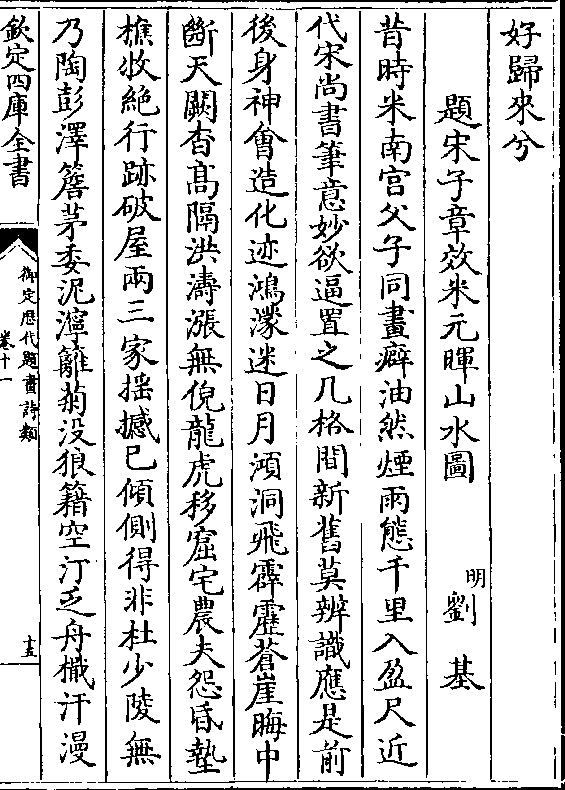 好歸來兮
題宋子章效米元暉山水圖 明 劉基
昔時米南宫父子同畫癖油然煙雨態千里入盈尺近
代宋尚書筆意妙欲逼置之几格間新舊莫辨識應是前
後身神會造化迹鴻濛迷日月澒洞飛霹靂蒼崖晦中
斷天闕杳髙隔洪濤漲無倪龍虎移窟宅農夫怨昏墊
樵牧絶行跡破屋兩三家揺撼已傾側得非杜少陵無
乃陶彭澤簷茅委泥濘籬菊没狼籍空汀乏舟檝汗漫
欽定四庫全書
御定歴代題畫詩類
卷十一
十五